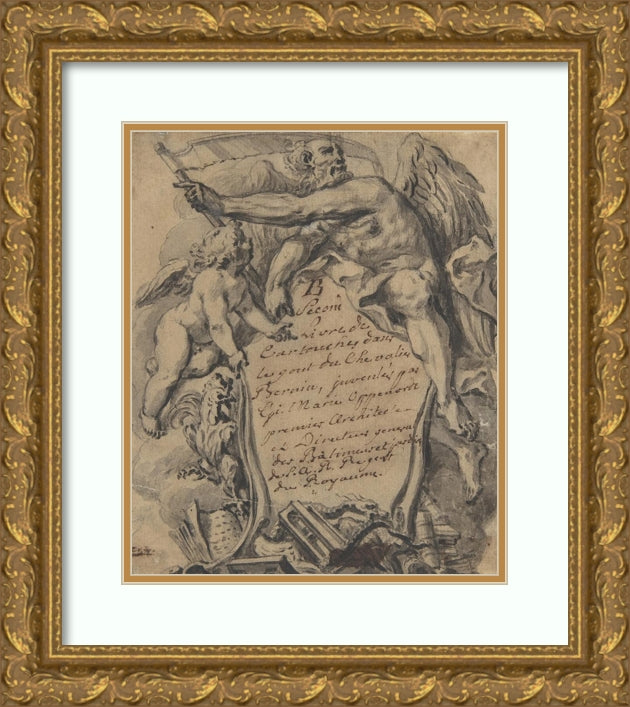 B
Second
Livre de
Cartouches dans
le gout du Chevalier
Bernin, inventés par
Gil. Marie Oppenort
premier Architecte
et Directeur general
des Bâtiments et jardins
de S. A. R. Regent
du Royaume.